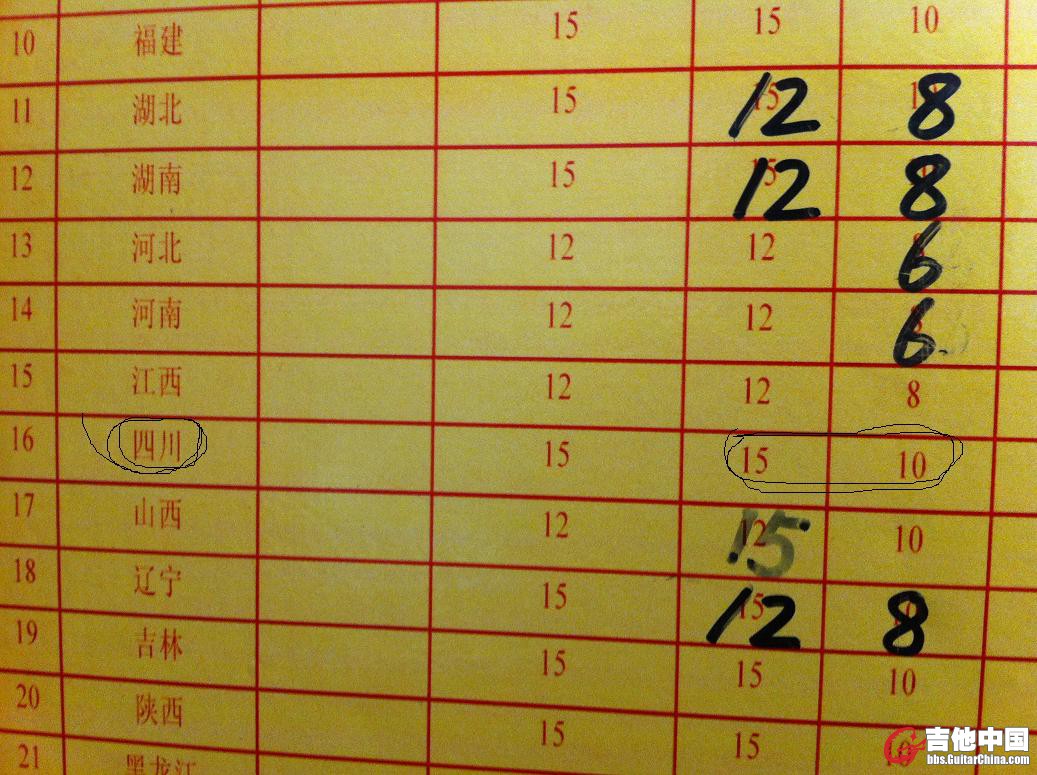 10 福建 15 15 10
11 湖北 15 15 12 8
12 湖南 15 15 12 8
13 河北 12 12 6
14 河南 12 12 6
15 江西 12 12 8
16 四川 15 15 10
17 山西 12 12 15 10
18 辽宁 15 15 12 8
19 吉林 15 15 10
20 陕西 15 15
21 黑龙江
吉他中国
bbs.GuitarChina.com